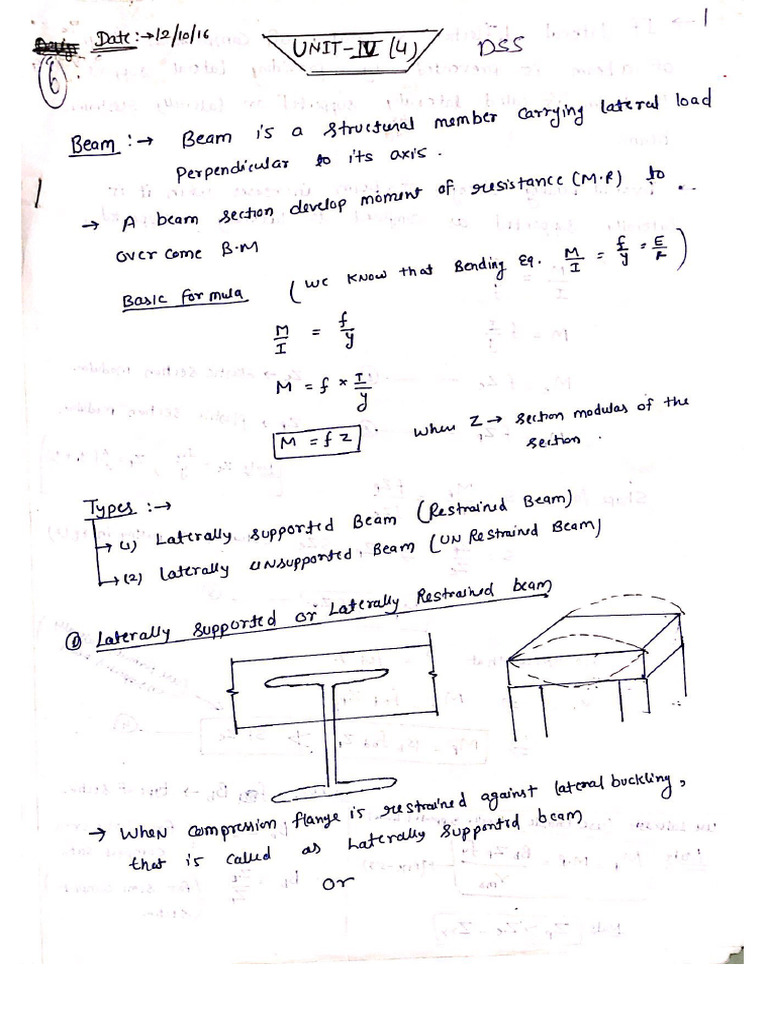 Date :→ 12/10/16
UNIT-IV (4)
DSS
1
6
Beam :→ Beam is a structural member carrying lateral load
Perpendicular to its axis.
1
→ A beam section develop moment of resistance (M.R) to
over come B.M
Basic formula (we know that Bending Eq. M/I = f/y = E/R)
M/I = f/y
M = f * I/y
M = f Z when Z → section modulas of the
section.
Types :→
→ (1) Laterally supported Beam (Restrained Beam)
→ (2) Laterally unsupported Beam (UN Restrained Beam)
① Laterally supported or Laterally Restrained beam
→ when compression flange is restrained against lateral buckling,
that is called as Laterally supported beam
or